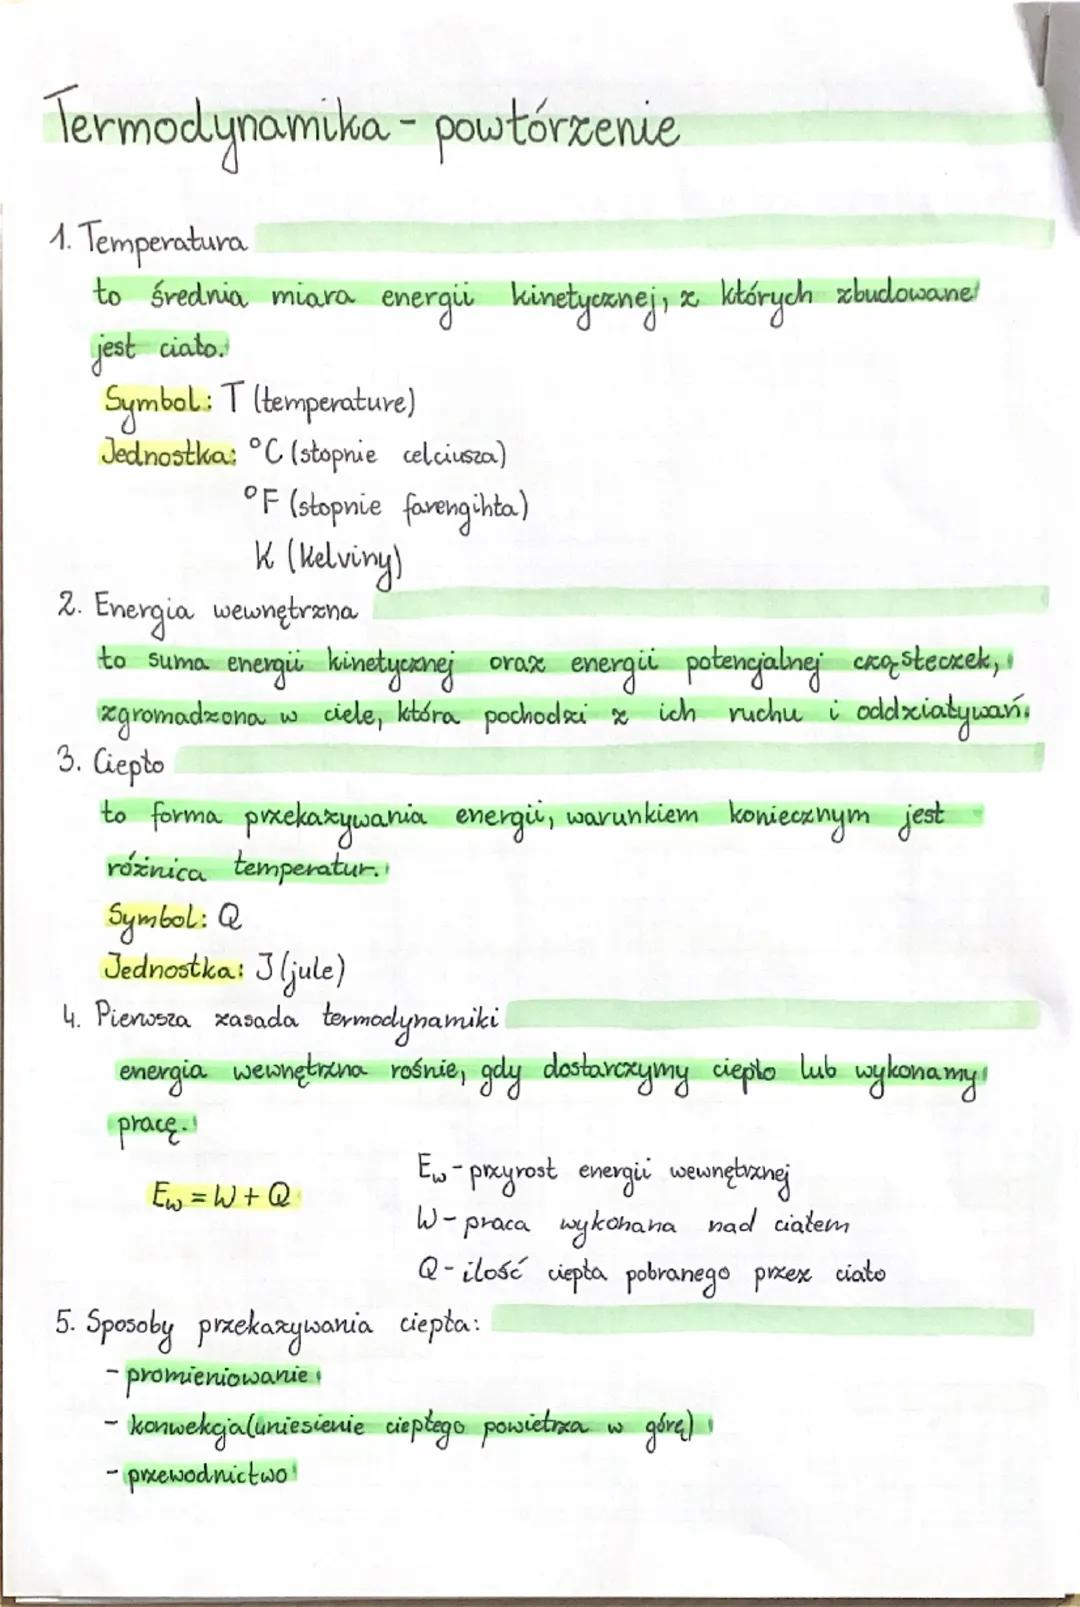 Termodynamika - powtórzenie
1. Temperatura
to średnia miara energii kinetycznej, z których zbudowane
jest ciało.
Symbol: T (temperature)
Jednostka: °C (stopnie celciusza)
°F (stopnie farengihta)
K (kelviny)
2. Energia wewnętrzna
to suma energii kinetycznej oraz energii potencjalnej cząsteczek,
zgromadzona w ciele, która pochodzi z ich ruchu i oddziaływań.
3. Ciepło
to forma przekazywania energii, warunkiem koniecznym jest
różnica temperatur.
Symbol: Q
Jednostka: J (jule)
4. Pierwsza zasada termodynamiki
energia wewnętrzna rośnie, gdy dostarczymy ciepło lub wykonamy
pracę.
Ew = W + Q
Ew - przyrost energii wewnętrznej
W - praca wykonana nad ciałem
Q - ilość ciepła pobranego przez ciało
5. Sposoby przekazywania ciepła:
- promieniowanie
- konwekcja (uniesienie ciepłego powietrza w górę)
- przewodnictwo